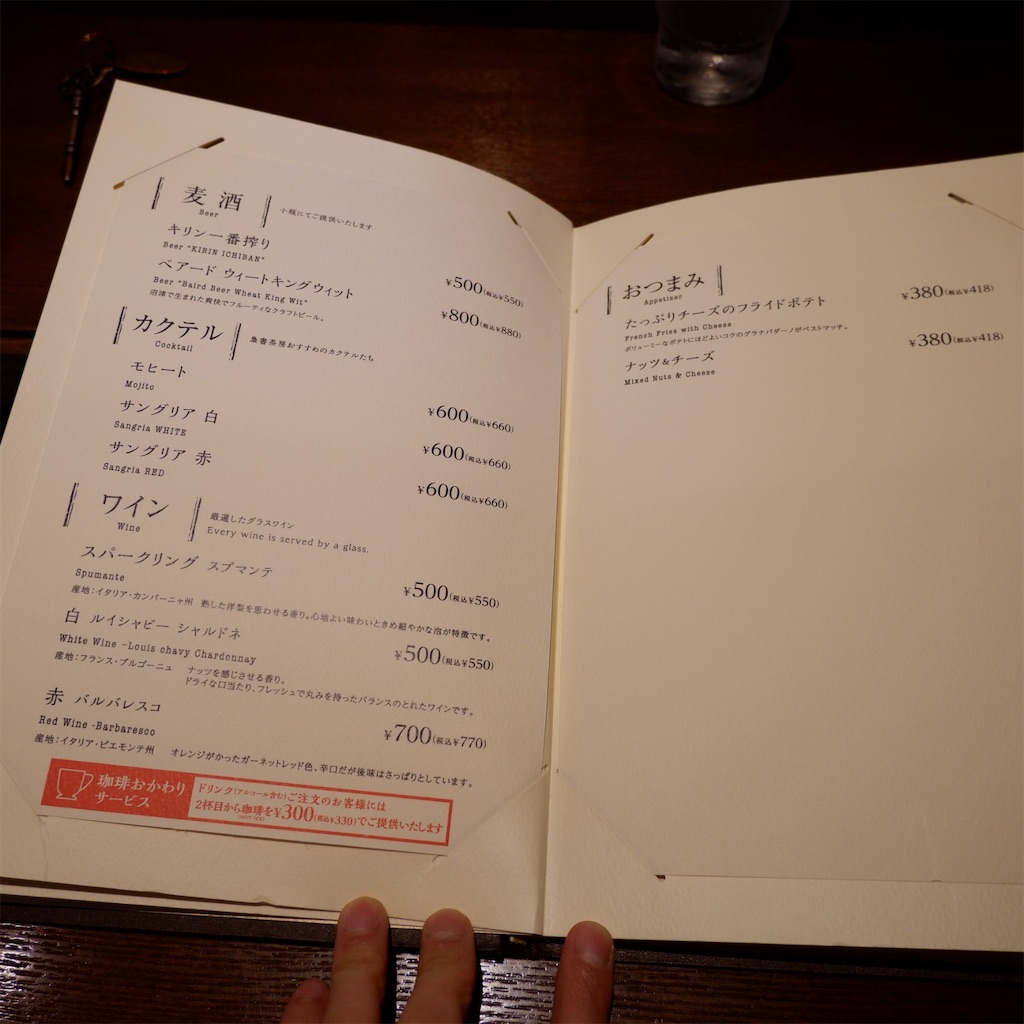 麦酒
Beer
小瓶にてご提供いたします
キリン一番搾り
Beer "KIRIN ICHIBAN"
¥500(税込¥550)
ベアード ウィートキングウィット
Beer "Baird Beer Wheat King Wit"
沼津で生まれた爽快でフルーティなクラフトビール。
¥800(税込¥880)
カクテル
Cocktail
梟書茶房おすすめのカクテルたち
モヒート
Mojito
¥600(税込¥660)
サングリア 白
Sangria WHITE
¥600(税込¥660)
サングリア 赤
Sangria RED
¥600(税込¥660)
ワイン
Wine
厳選したグラスワイン
Every wine is served by a glass.
スパークリング スプマンテ
Spumante
¥500(税込¥550)
産地：イタリア・カンパーニャ州 熟した洋梨を思わせる香り。心地よい味わいときめ細やかな泡が特徴です。
白 ルイシャビー シャルドネ
White Wine -Louis chavy Chardonnay
¥500(税込¥550)
産地：フランス・ブルゴーニュ ナッツを感じさせる香り。
ドライな口当たり、フレッシュで丸みを持ったバランスのとれたワインです。
赤 バルバレスコ
Red Wine -Barbaresco
¥700(税込¥770)
産地：イタリア・ピエモンテ州 オレンジがかったガーネットレッド色、辛口だが後味はさっぱりとしています。
珈琲おかわり
サービス
ドリンク(アルコール含む)ご注文のお客様には
2杯目から珈琲を¥300(税込¥330)でご提供いたします
(HOT・ICE)
おつまみ
Appetizer
たっぷりチーズのフライドポテト
French Fries with Cheese
¥380(税込¥418)
ボリューミーなポテトにほどよいコクのグラナパダーノがベストマッチ。
ナッツ&チーズ
Mixed Nuts & Cheese
¥380(税込¥418)